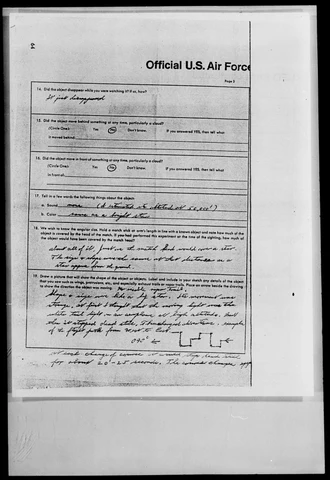 Official U.S. Air Force
Page 3
14. Did the object disappear while you were watching it? If so, how?
It just disappeared
15. Did the object move behind something at any time, particularly a cloud?
(Circle One) Yes No Don't Know. If you answered YES, then tell what
it moved behind
16. Did the object move in front of something at any time, particularly a cloud?
(Circle One) Yes No Don't Know. If you answered YES, then tell what
in front of
17. Tell in a few words the following things about the object:
a. Sound none (I estimated its altitude at
b. Color same as a bright star
18. We wish to know the angular size. Hold a match stick at arm's length in line with a known object and note how much of the
object is covered by the head of the match. If you had performed this experiment at the time of the sighting, how much of
the object would have been covered by the match head?
about all of it, just as the match head would cover a star.
The size & shape were the same at that distance as a
star appears from the ground.
19. Draw a picture that will show the shape of the object or objects. Label and include in your sketch any details of the object
that you saw such as wings, protrusions, etc., and especially exhaust trails or vapor trails. Place an arrow beside the drawing
to show the direction the object was moving. No visible vapor trail.
Shape & size was like a big star. Its movement was
strange, at first I thought that the moving light was the
white tail light on an airplane at high altitude. But
when it stopped dead still, I
of the flight path from West to East
at each change of course it would stop dead still
for about 20 - 25 seconds. The course changes